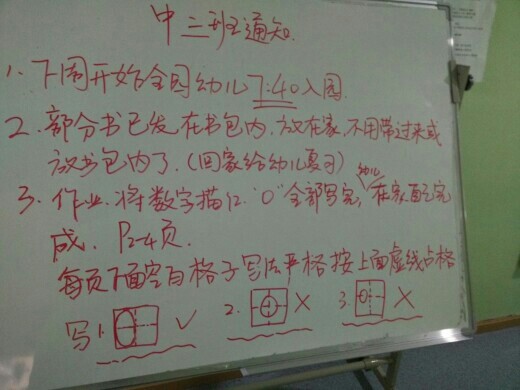 中三班通知
1、下周开始全园幼儿7:40入园.
2、部分书已发,在书包内,放在家,不用带过来或
放书包内了.(回家给幼儿复习)
3、作业.将数字描12."0"全部写完,幼儿在家自己完
成. P2-4页.
每页下面空白格子写法严格按上面虚线占格
写1. ✓ 2. X 3. X